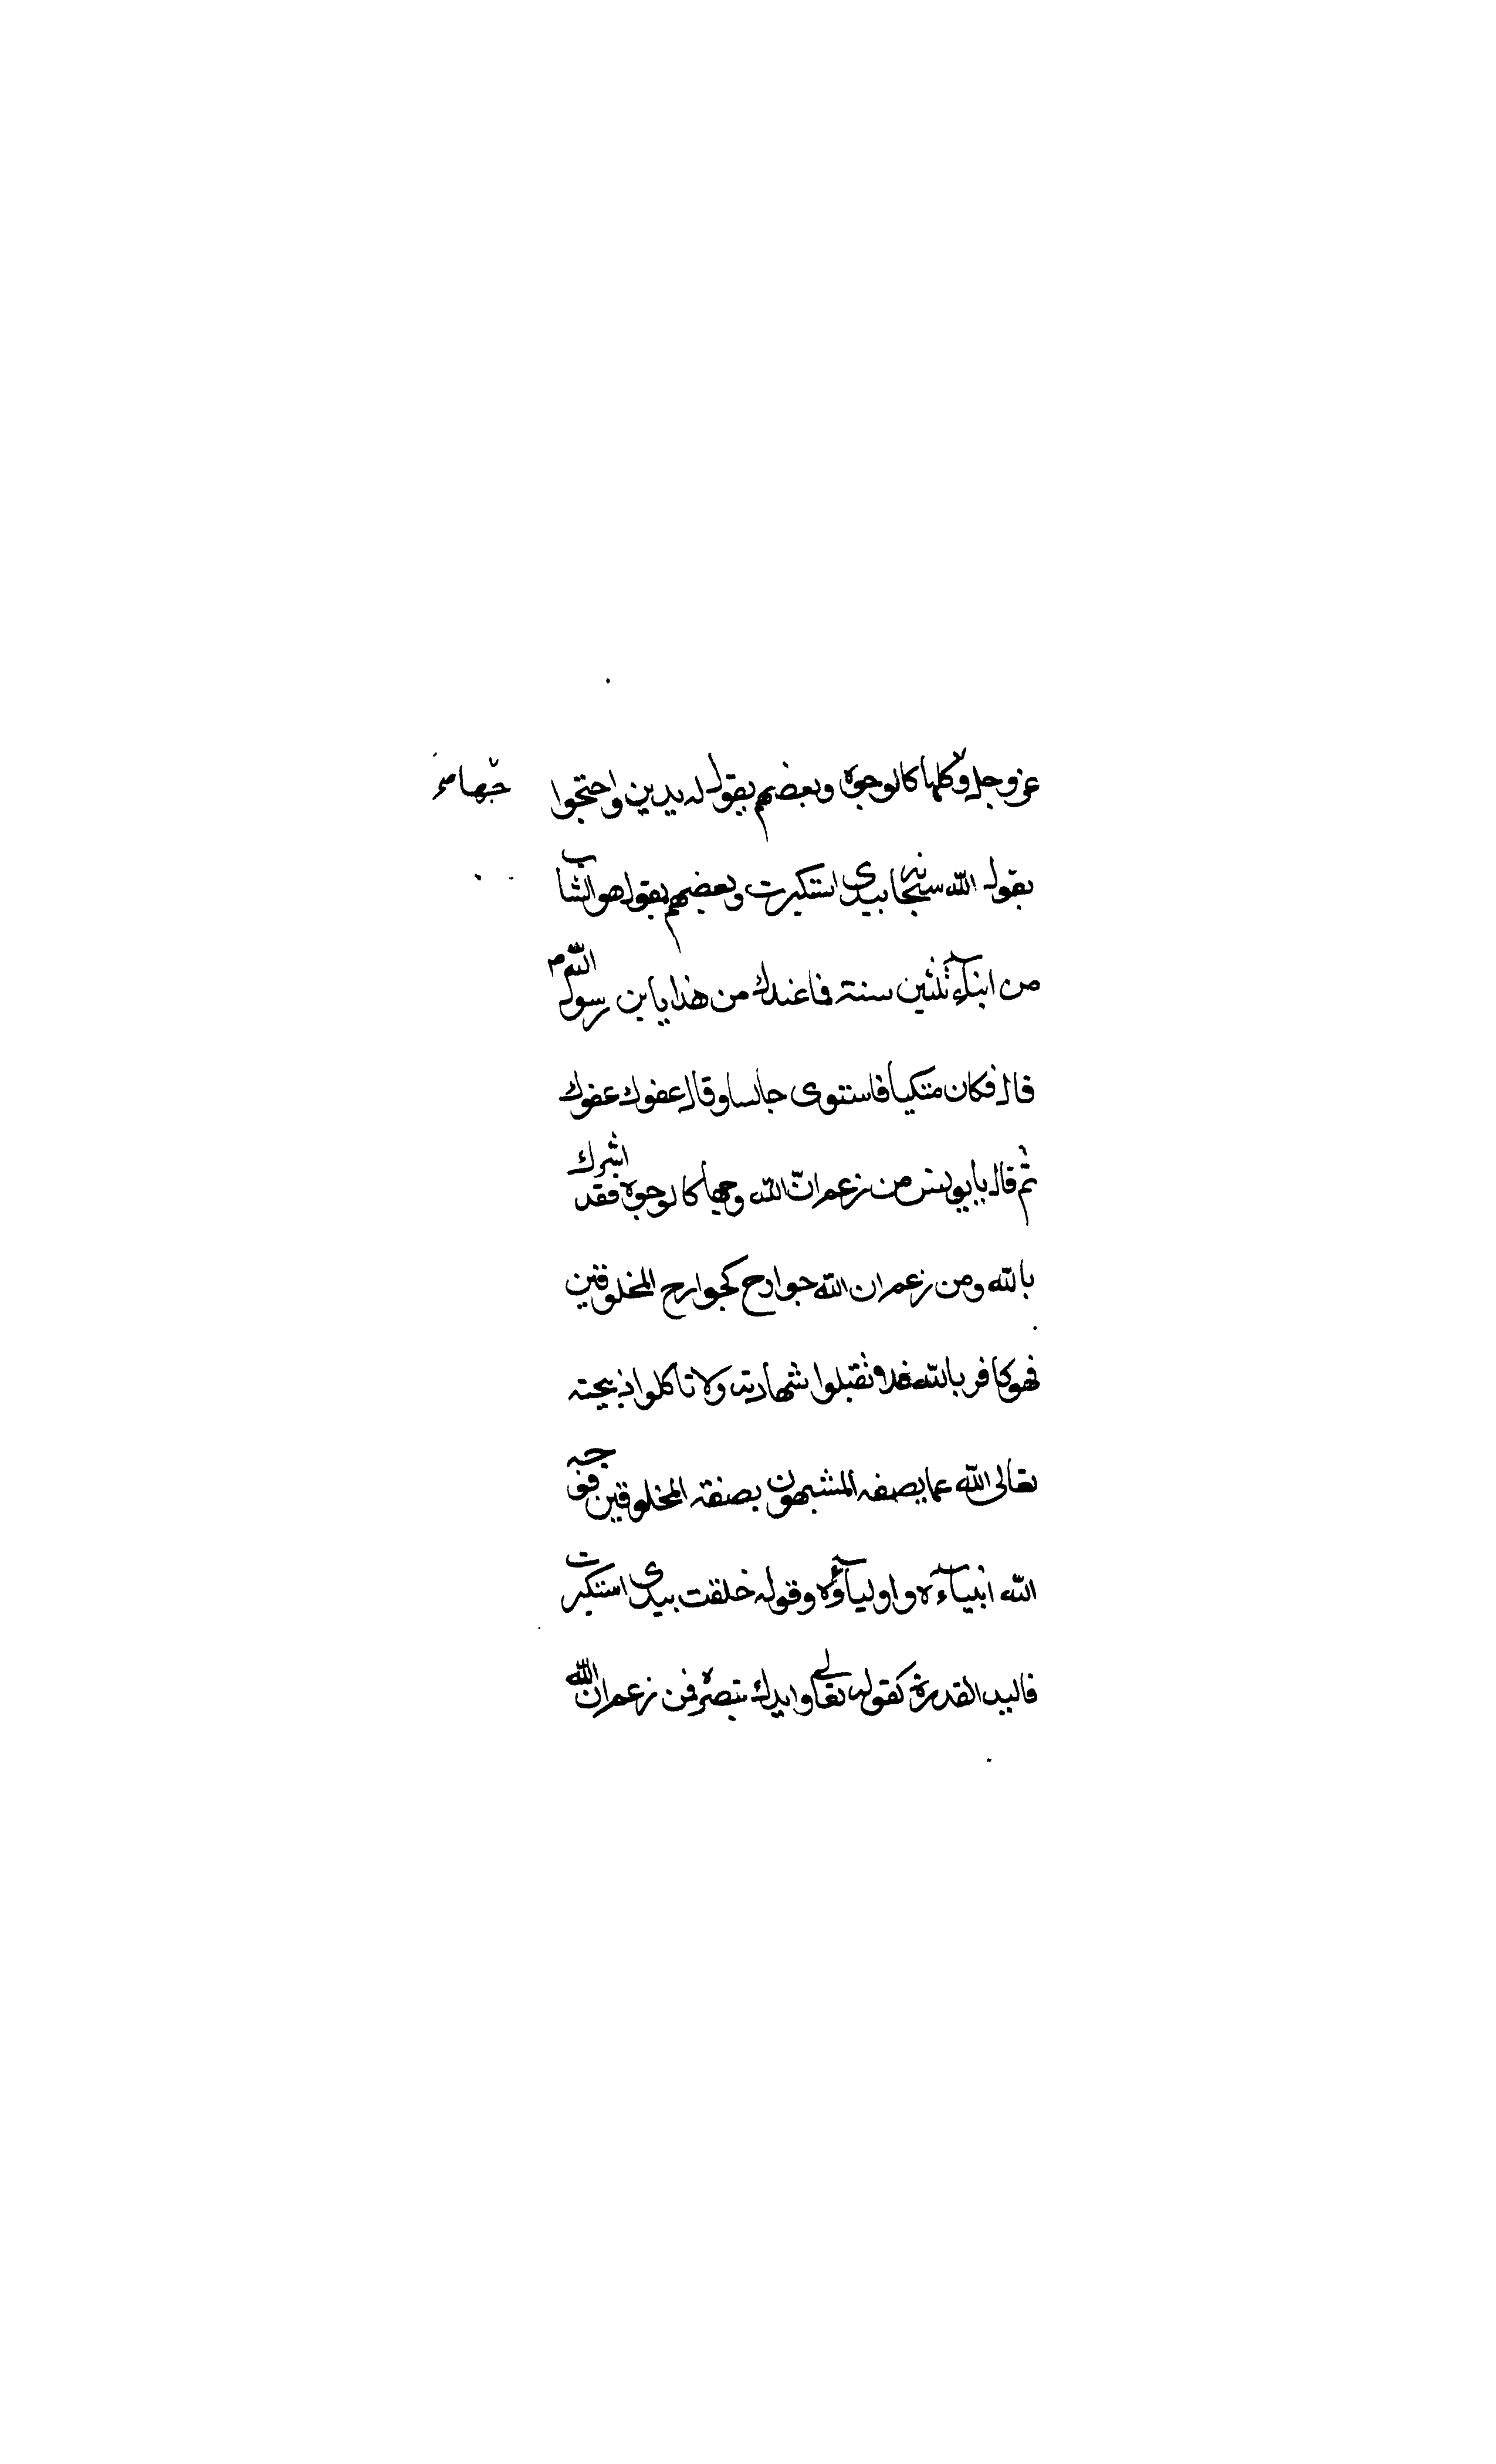 عز وجل وكلها كالوجوه وبعضهم يقول له يدين واحتجوا
بقول الله سبحانه بيدي استكبرت وبعضهم يقول هو الشاب
من ابناء ثلثين سنة فما عندك من هذا يا بن رسول الله
قال فكان متكيا فاستوى جالسا وقال عفوك عفوك
ثم قال يا يونس من زعم ان الله وجها كالوجوه فقد اشرك
بالله ومن زعم ان الله جوارح كجوارح المخلوقين
فهو كافر بالله فلا تقبلوا شهادته ولا تاكلوا ذبيحته
تعالى الله عما يصفه المشبهون بصفة المخلوقين فوجه
الله انبياءه واولياؤه وقوله خلقت بيدي استكبرت
فاليد القدرة كقوله تعالى وايدك بنصره فمن زعم ان الله